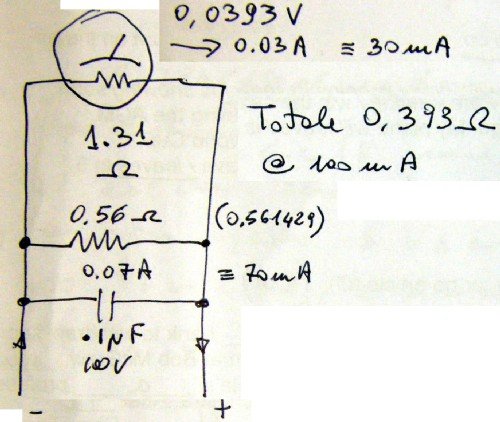 0,0393 V
→ 0.03A ≡ 30mA
Totale 0,393Ω
@ 100 mA
1.31
Ω
0.56 Ω
(0.561429)
0.07A
≡ 70mA
.1µF
100V
-
+